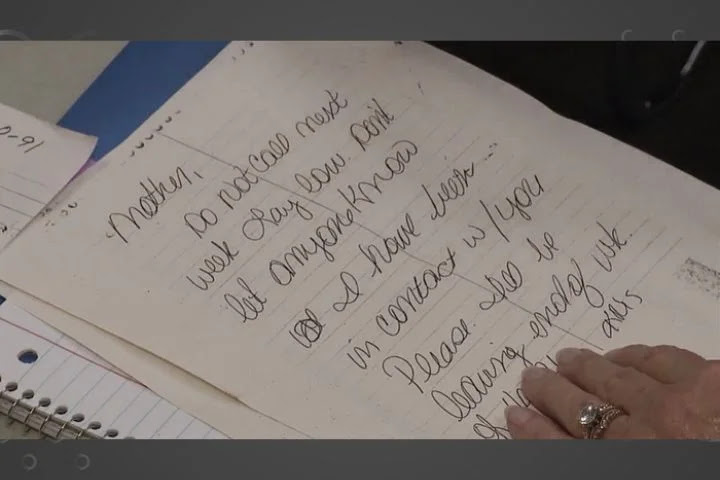 0-91
Mother,
Do Not Call next
week Lay low. Don't
let anyone know
I have been
in contact w/you
Please. Ill be
leaving end of wk.